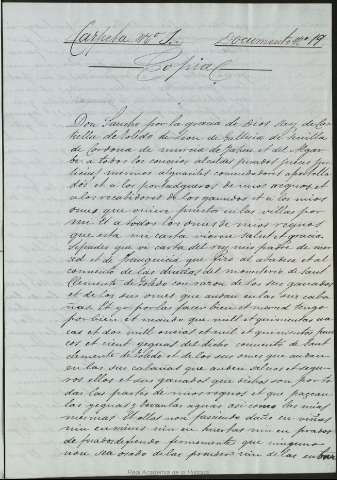 Carpeta nº 1. Documento nº 19
Copia
Don Sancho por la gracia de Dios Rey de Cas
tiella de Toledo de Leon de Gallisia de Sevilla
de Cordova de murcia de Jahen et del Algar
be a todos los conceios alcaldes jurados jueces jus
ticias merinos alguasiles comendadores aportella
dos et a los portadgueros de mios regnos et
a los recabdadores de los ganados et a los mios
omes que vinieren puestos en las villas por
mi et a todos los omes de mios regnos
que esta mi carta vieren salut et gracia
Sepades que vi carta del rey mio padre de mer
ced et de franqueza que fizo al abadesa et al
convento de las dueñas del monesterio de Sant
Clemente de Toledo con razon de los sus ganados
et de los sus omes que andan en las sus caba
ñas Et yo por les facer bien et merced tengo
por bien et mando que mill et quinientas va
cas et dos mill oveias et mil et quinientos puer
cos et cient yeguas del dicho convento de Sant
Clemente de Toledo et de los sus omes que andan
en las sus cabañas que anden salvos et segu
ros ellos et sus ganados que dichos son por to
das las partes de mios regnos et que pazcan
las yeguas y bevan las aguas asi como las mias
mismas Et ellos non faciendo daño en viñas
nin en mieses nin en huertas nin en prados
defesados defiendo firmemente que ninguno
non sea osado de los prender nin de los enbar
Real Academia de la Historia